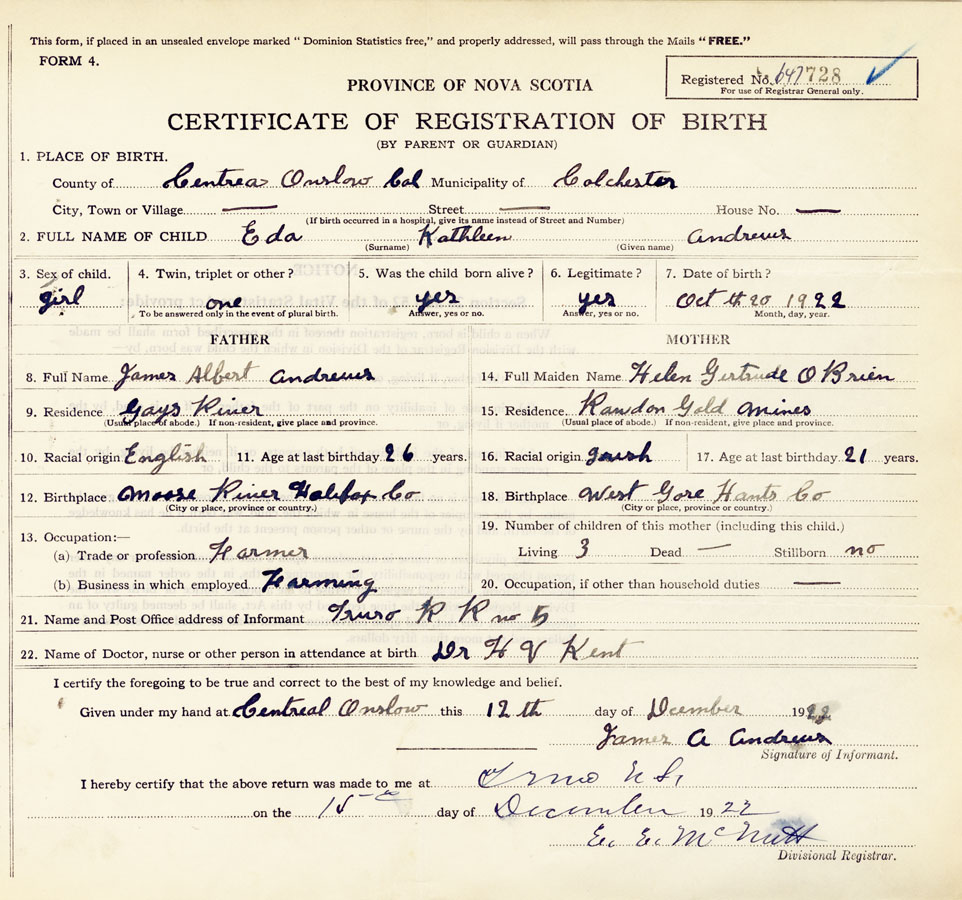 This form, if placed in an unsealed envelope marked "Dominion Statistics free," and properly addressed, will pass through the Mails "FREE."
FORM 4.
Registered No. 647728
For use of Registrar General only.
PROVINCE OF NOVA SCOTIA
CERTIFICATE OF REGISTRATION OF BIRTH
(BY PARENT OR GUARDIAN)
1. PLACE OF BIRTH.
County of Centreas Onslow Col Municipality of Colchester
City, Town or Village — Street — House No. —
(If birth occurred in a hospital, give its name instead of Street and Number)
2. FULL NAME OF CHILD Eda Kathleen Andrews
(Surname) (Given name)
3. Sex of child. 4. Twin, triplet or other? 5. Was the child born alive? 6. Legitimate? 7. Date of birth?
girl one yes yes Oct th 20 1922
To be answered only in the event of plural birth. Answer, yes or no. Answer, yes or no. Month, day, year.
FATHER MOTHER
8. Full Name James Albert Andrews 14. Full Maiden Name Helen Gertrude O Brien
9. Residence Gays River 15. Residence. Rawdon Gold Mines
(Usual place of abode.) If non-resident, give place and province. (Usual place of abode.) If non-resident, give place and province.
10. Racial origin English 11. Age at last birthday 26 years. 16. Racial origin Irush 17. Age at last birthday 21 years.
12. Birthplace Moose River Halifax Co 18. Birthplace West Gore Hants Co
(City or place, province or country.) (City or place, province or country.)
13. Occupation:— 19. Number of children of this mother (including this child.)
(a) Trade or profession Farmer Living 3 Dead — Stillborn no
(b) Business in which employed Farming 20. Occupation, if other than household duties —
21. Name and Post Office address of Informant Truro R R no 5
22. Name of Doctor, nurse or other person in attendance at birth Dr H V Kent
I certify the foregoing to be true and correct to the best of my knowledge and belief.
Given under my hand at Centreal Onslow this 12 th day of Dcember 1922
James A Andrews
Signature of Informant.
I hereby certify that the above return was made to me at Truro N.S.
on the 15 day of December 1922
E. E. McNutt
Divisional Registrar.